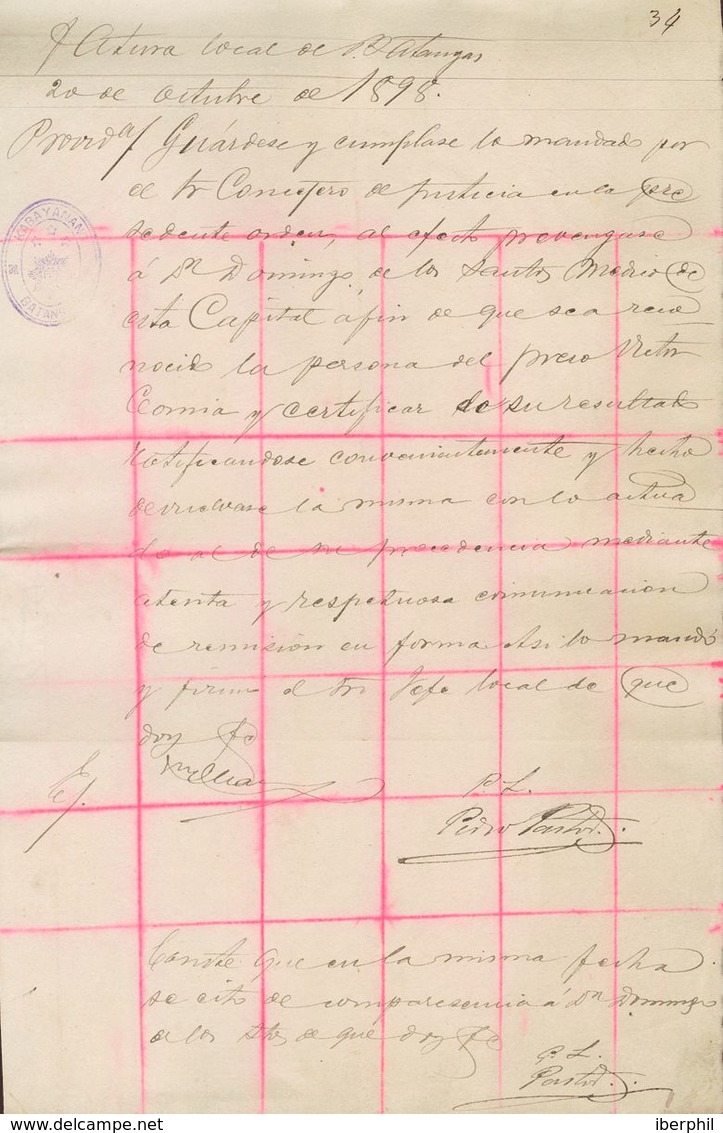 34
Jefatura local de Batangas
20 de Octubre de 1898.
Provid.a/ Guárdese y cumplase lo mandado por
el Sr Consejero de justicia en la pre
sedente orden, al efecto prevengase
á Dn Domingo de los Santos Medico de
esta Capital á fin de que sea reco
nocido la persona del preso Victor
y certificar de su resultado
Notificandose convenientemente y hecho
devuelvase la misma con lo actua
do al de su procedencia mediante
atenta y respetuosa comunicacion
de remision en forma. Asi lo mandó
y firmó el Sr Jefe local de que
doy fe
P. L.
Pedro Pastor.
Conste que en la misma fecha
se citó de comparesencia á Dn Domingo
de los Stos de que doy fe
P. L.
Pastor.
KABAYANAN
BATANG
delcampe.net
iberphil